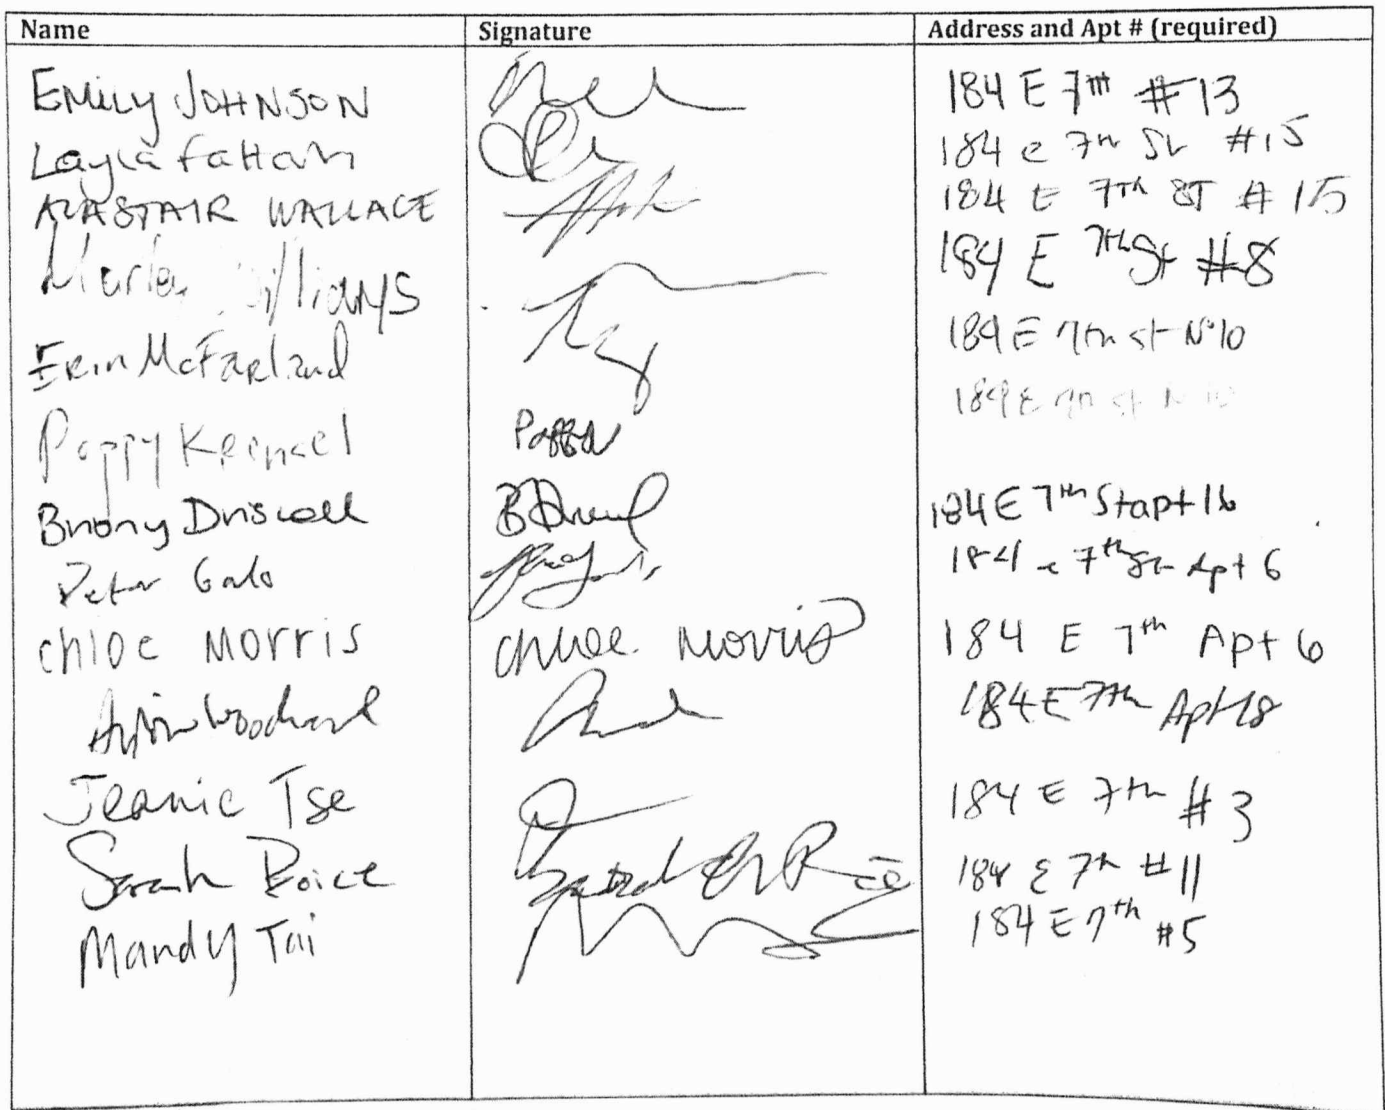 Name Signature Address and Apt # (required)
EMILY JOHNSON 184 E 7TH #13
Layla Fattah 184 e 7th St #15
ALASTAIR WALLACE 184 E 7TH ST # 15
Marley Williams 184 E 7th St #8
Erin McFarland 184 E 7th st Nº10
Poppy 184 E 7th st Nº10
Briony Driscoll 184 E 7th St apt 16
Peter Galo 184 e 7th St Apt 6
Chloe Morris Chloe Morris 184 E 7th Apt 6
Woodward 184 E 7th Apt 18
Jeanie Tse 184 E 7th #3
Sarah Boice 184 E 7th #11
Mandy Tai 184 E 7th #5